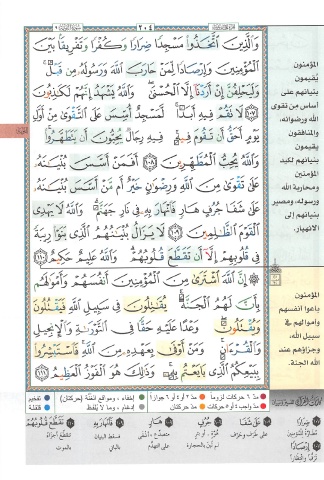 ٢٠٤
وَالَّذِينَ اتَّخَذُوا مَسْجِدًا ضِرَارًا وَكُفْرًا وَتَفْرِيقًا بَيْنَ
الْمُؤْمِنِينَ وَإِرْصَادًا لِمَنْ حَارَبَ اللَّهَ وَرَسُولَهُ مِن قَبْلُ
وَلَيَحْلِفُنَّ إِنْ أَرَدْنَا إِلَّا الْحُسْنَىٰ وَاللَّهُ يَشْهَدُ إِنَّهُمْ لَكَاذِبُونَ
١٠٧ لَا تَقُمْ فِيهِ أَبَدًا لَمَسْجِدٌ أُسِّسَ عَلَى التَّقْوَىٰ مِنْ أَوَّلِ
يَوْمٍ أَحَقُّ أَن تَقُومَ فِيهِ فِيهِ رِجَالٌ يُحِبُّونَ أَن يَتَطَهَّرُوا
وَاللَّهُ يُحِبُّ الْمُطَّهِّرِينَ ١٠٨ أَفَمَنْ أَسَّسَ بُنْيَانَهُ
عَلَىٰ تَقْوَىٰ مِنَ اللَّهِ وَرِضْوَانٍ خَيْرٌ أَم مَّنْ أَسَّسَ بُنْيَانَهُ
عَلَىٰ شَفَا جُرُفٍ هَارٍ فَانْهَارَ بِهِ فِي نَارِ جَهَنَّمَ وَاللَّهُ لَا يَهْدِي
الْقَوْمَ الظَّالِمِينَ ١٠٩ لَا يَزَالُ بُنْيَانُهُمُ الَّذِي بَنَوْا رِيبَةً
فِي قُلُوبِهِمْ إِلَّا أَن تَقَطَّعَ قُلُوبُهُمْ وَاللَّهُ عَلِيمٌ حَكِيمٌ ١١٠
إِنَّ اللَّهَ اشْتَرَىٰ مِنَ الْمُؤْمِنِينَ أَنفُسَهُمْ وَأَمْوَالَهُم
بِأَنَّ لَهُمُ الْجَنَّةَ يُقَاتِلُونَ فِي سَبِيلِ اللَّهِ فَيَقْتُلُونَ
وَيُقْتَلُونَ وَعْدًا عَلَيْهِ حَقًّا فِي التَّوْرَاةِ وَالْإِنجِيلِ
وَالْقُرْآنِ وَمَنْ أَوْفَىٰ بِعَهْدِهِ مِنَ اللَّهِ فَاسْتَبْشِرُوا
بِبَيْعِكُمُ الَّذِي بَايَعْتُم بِهِ وَذَٰلِكَ هُوَ الْفَوْزُ الْعَظِيمُ ١١١
المؤمنون
يُقيمون
بنيانهم على
أساس من تقوى
الله ورضوانه،
والمنافقون
يقيمون
بنيانهم لكيد
المؤمنين
ومحاربة الله
ورسوله، ومصير
بنيانهم إلى
الانهيار.
المؤمنون
باعوا أنفسهم
وأموالهم في
سبيل الله،
وجزاؤهم عند
الله الجنة.
مدّ ٦ حركات لزوماً مدّ ٢ أو ٤ أو ٦ جوازاً
مدّ واجب ٤ أو ٥ حركات مدّ حركتان
إخفاء، ومواقع الغنّة (حركتان)
إدغام، وما لا يُلفظ
تفخيم
قلقلة